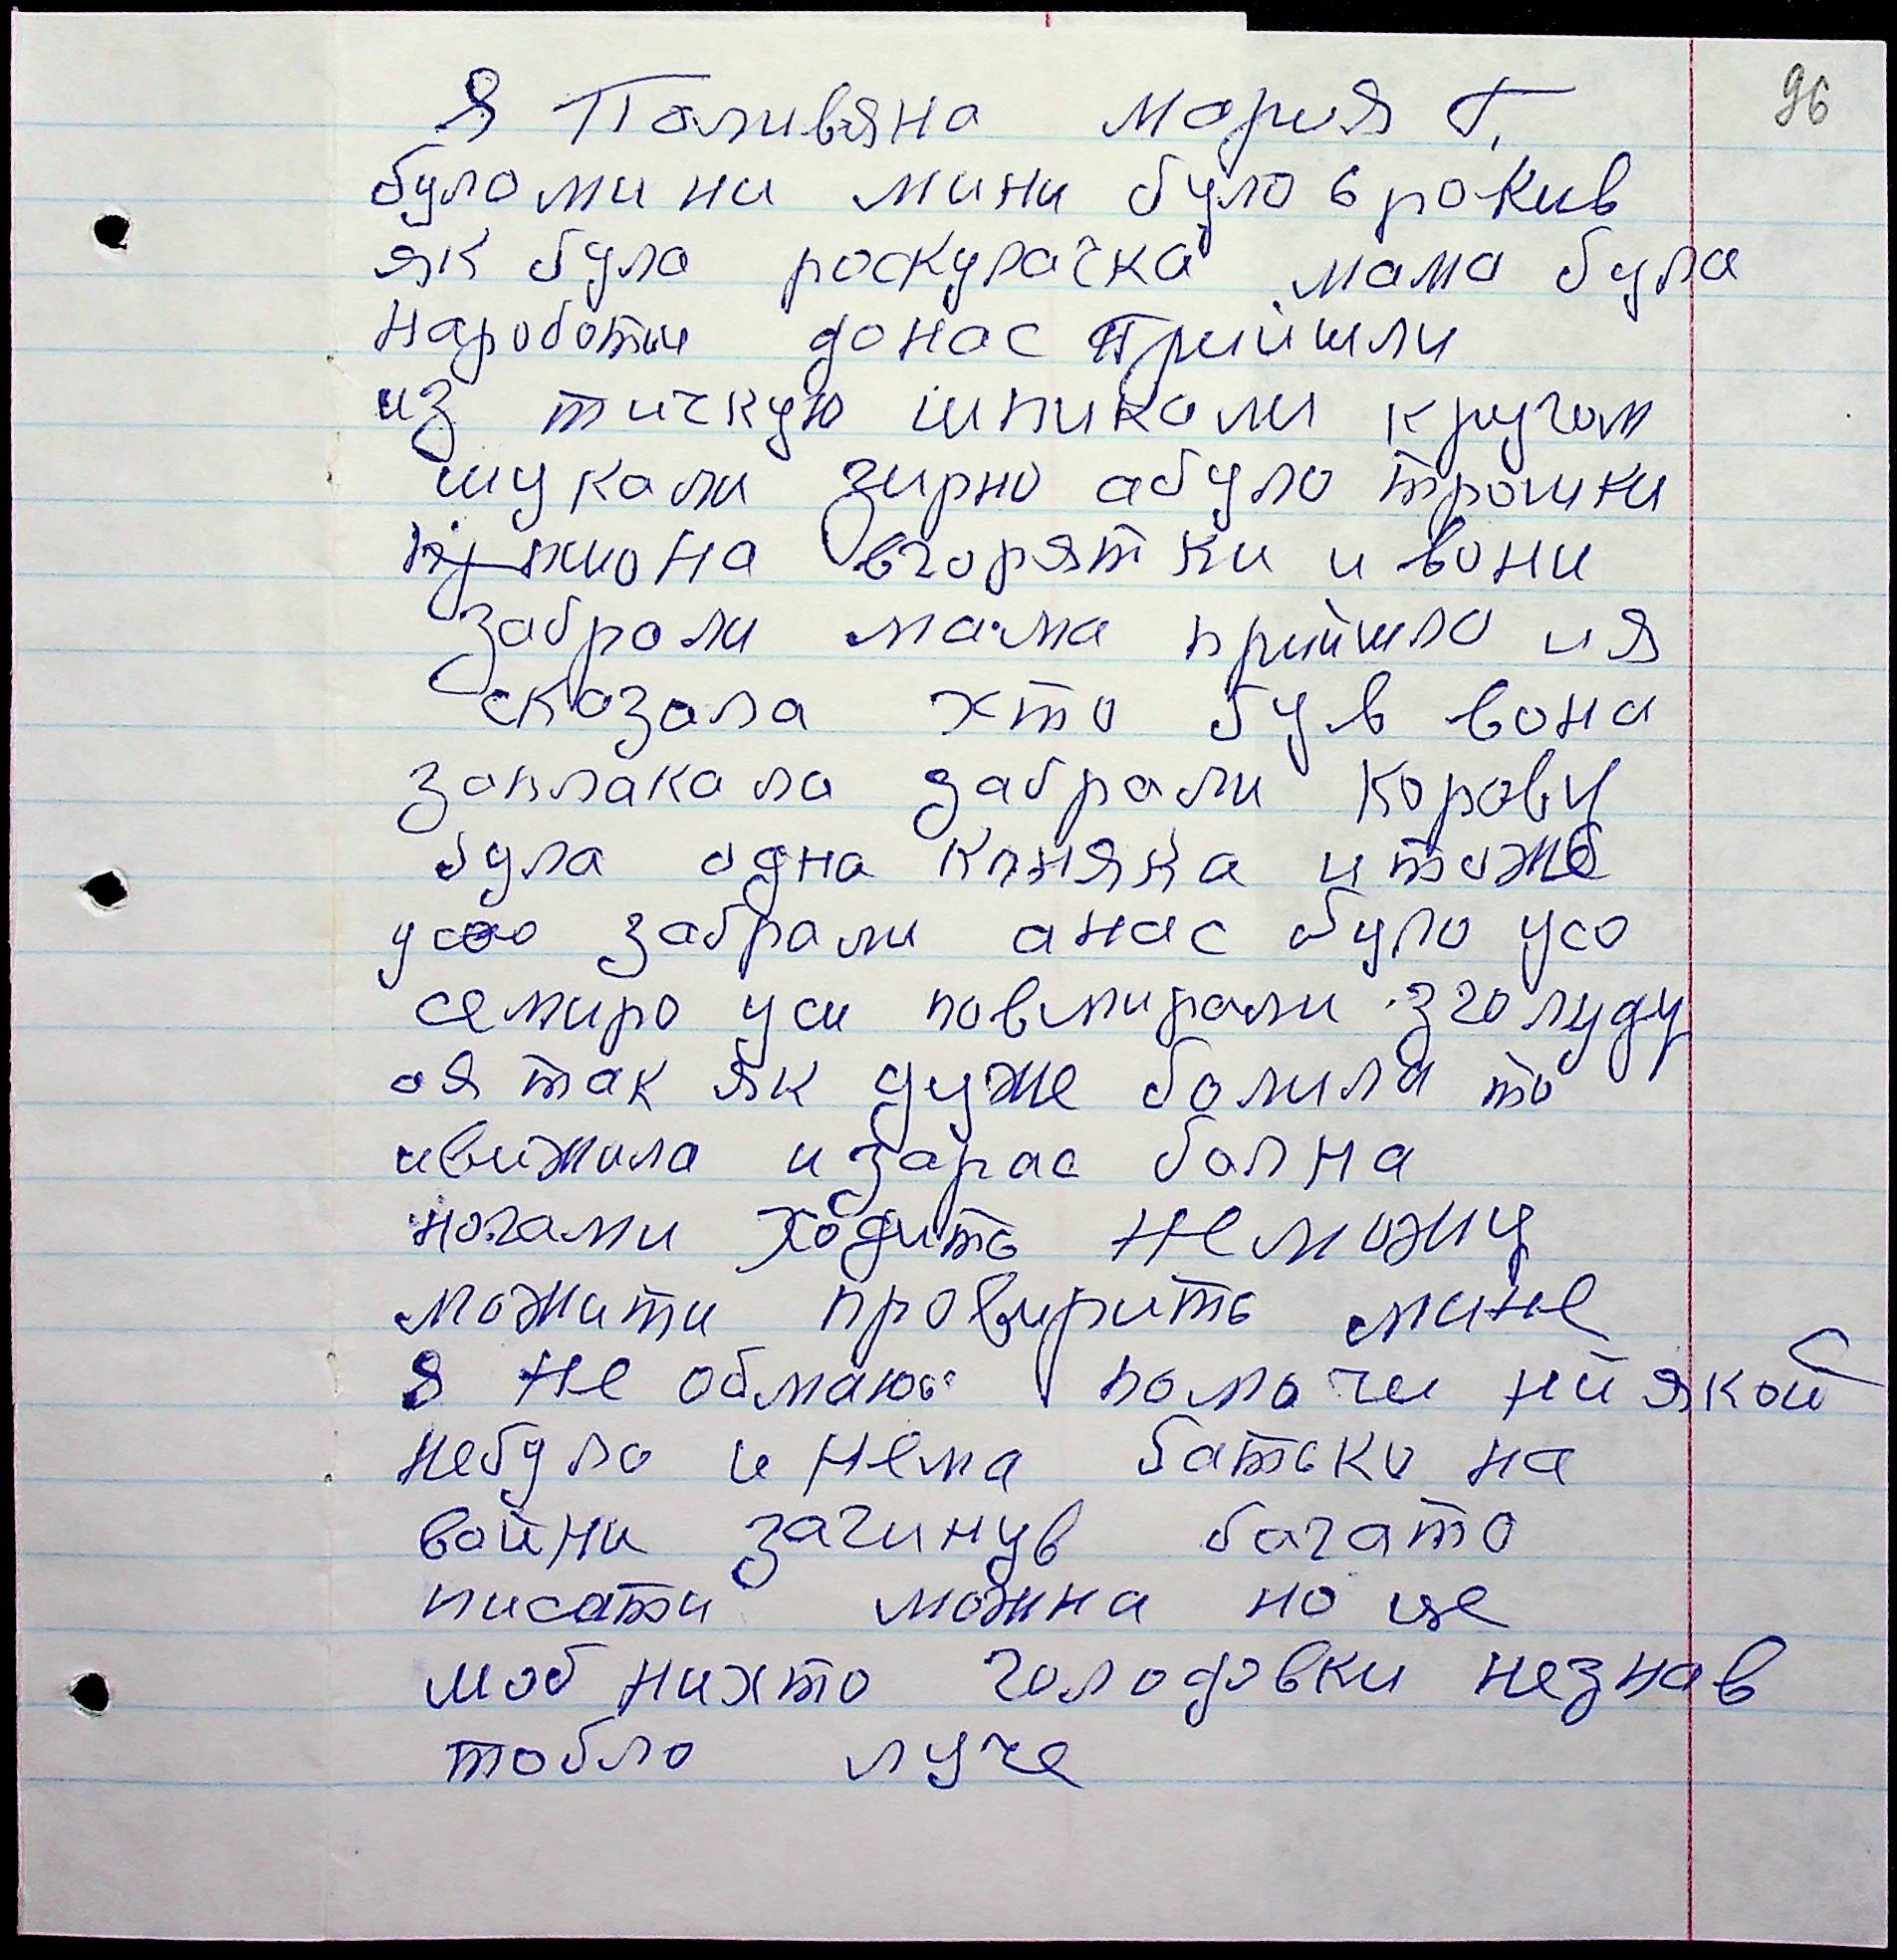 96
Я Поливяна Мария Г.
було мини мини було 6 рокив
як була роскулачка мама була
нароботи донас прийшли
из тичкую шпикали кругом
шукали зирно абуло трошки
пшона вгорятки и вони
забрали мама прийшла ия
сказала хто був вона
заплакала забрали корову
була одна коняка итоже
усо забрали анас було усо
семиро уси повмирали зголуду
оя так як дуже болила то
ивижила изарас болна
ногами ходить неможу
можити провирить мине
я не обмаюю помочи ниякой
небуло и нема батько на
войни загинув багато
писати можна но це
шоб нихто голодовки незнав
тобло луче